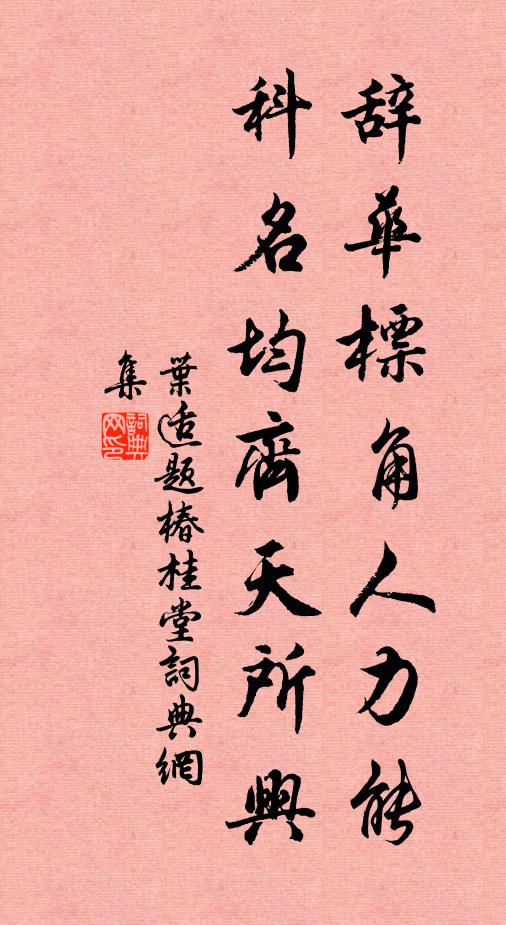 辞華標角人力能
科名均齊天所興
葉适題椿桂堂詞典網
集
詞典网印